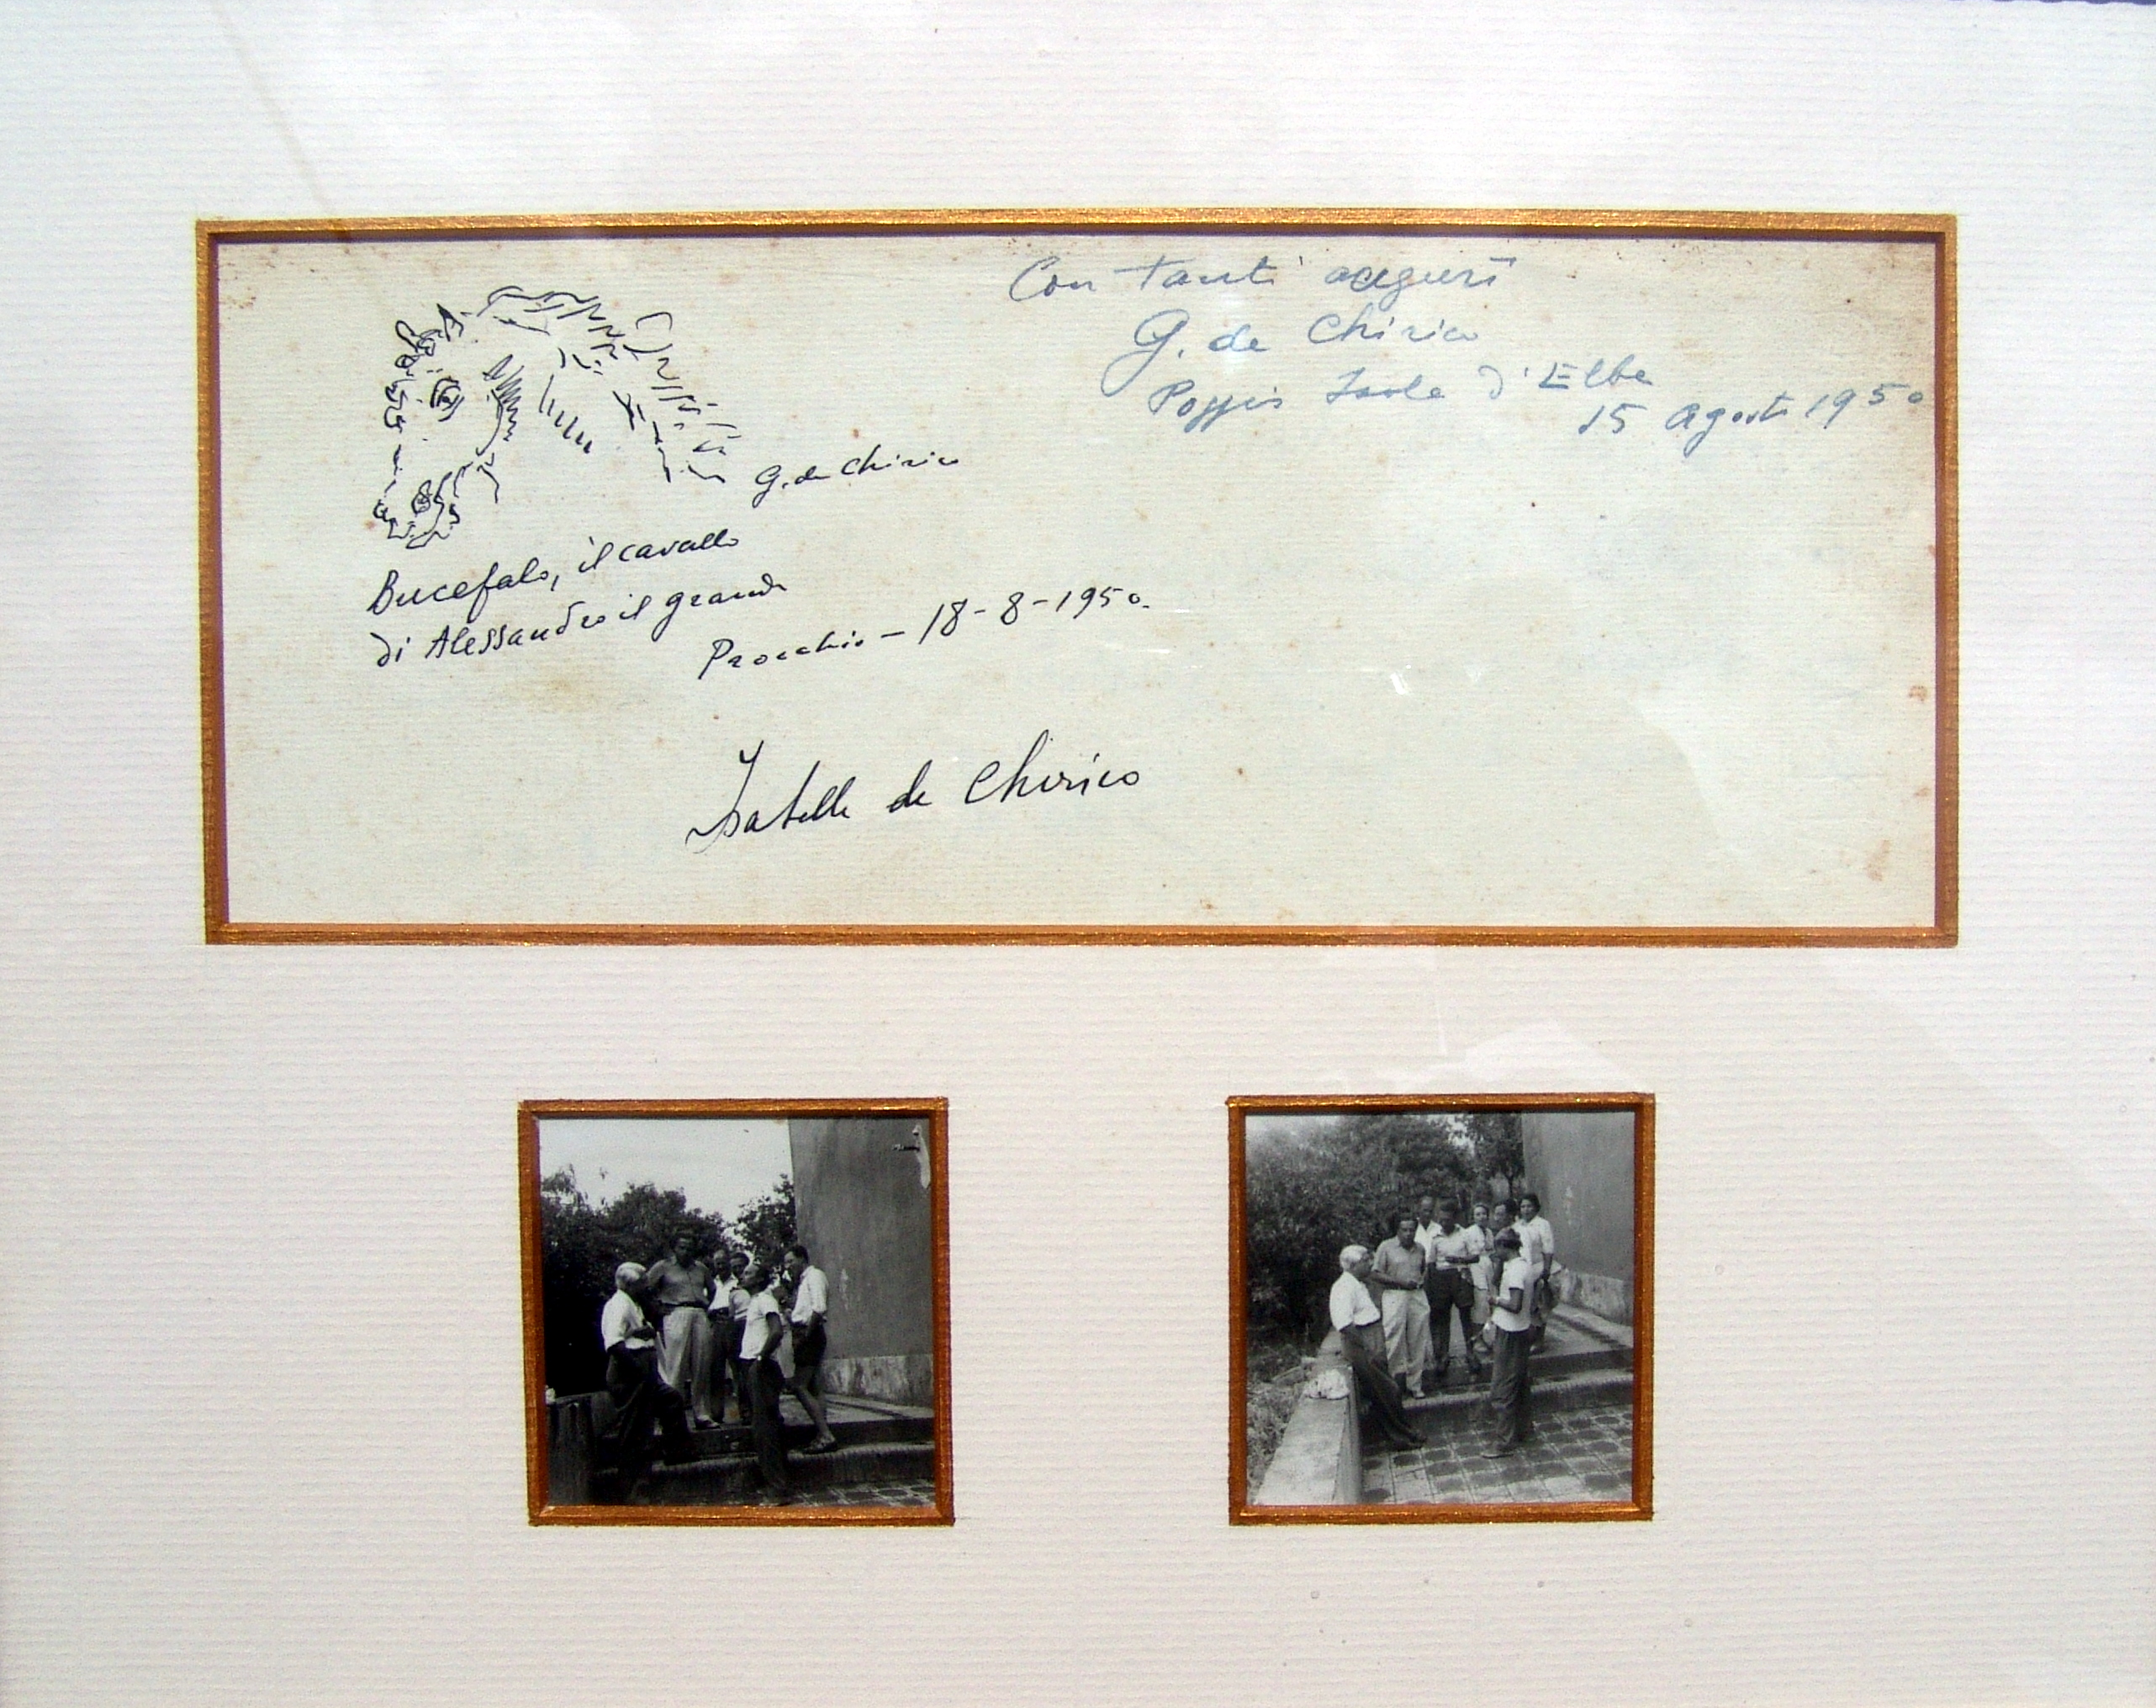 Con tanti auguri
G. de Chirico
Poggio Isola d'Elba
15 agosto 1950
G. de Chirico
Bucefalo, il cavallo
di Alessandro il grande
Procchio – 18-8-1950.
Isabella de Chirico